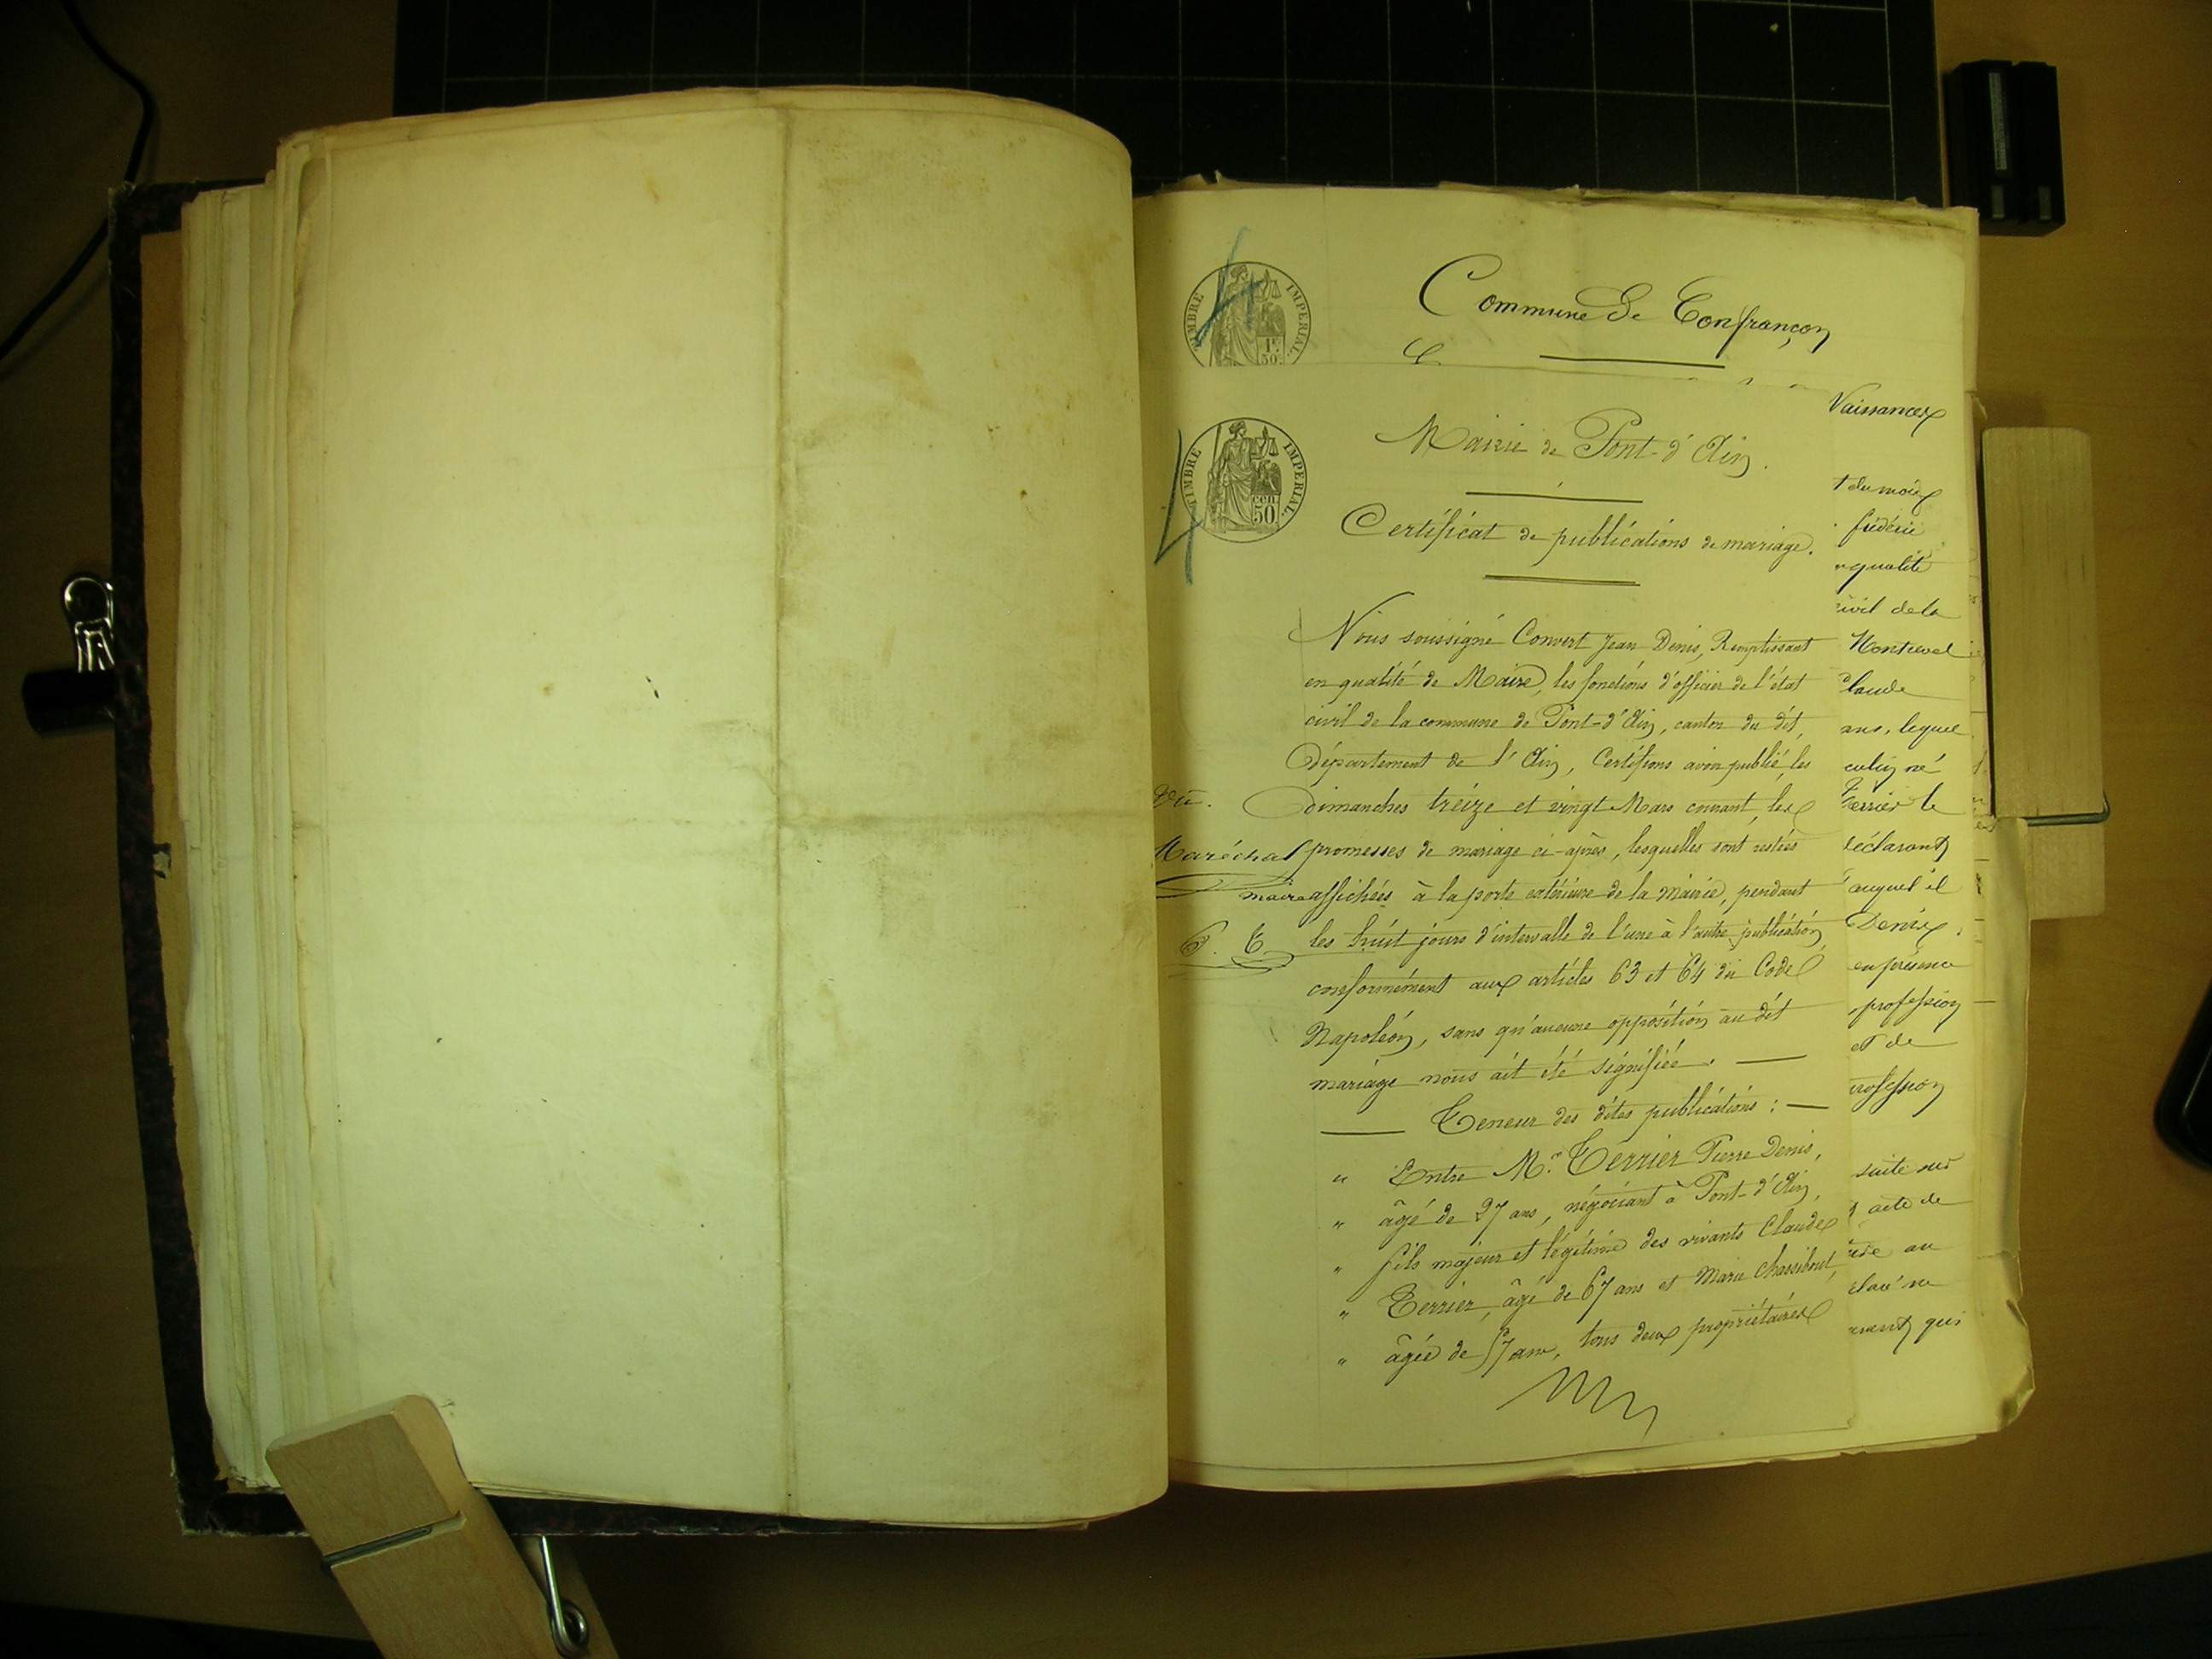 Commune de Confrançon
TIMBRE IMPERIAL
1F. 50c.
TIMBRE IMPERIAL
cen 50
Mairie de Pont-d'Ain.
Certificat de publications de mariage.
Nous soussigné Convert Jean Denis, Remplissant
en qualité de Maire, les fonctions d'officier de l'état
civil de la commune de Pont-d'Ain, canton du dit,
Département de l'Ain, Certifions avoir publié, les
dimanches treize et vingt Mars courant, les
promesses de mariage ci-après, lesquelles sont restées
affichées à la porte extérieure de la Mairie, pendant
les huit jours d'intervalle de l'une à l'autre publication,
conformément aux articles 63 et 64 du Code
Napoléon, sans qu'aucune opposition au dit
mariage nous ait été signifiée.
Teneur des dites publications :
" Entre Mr. Terrier Pierre Denis,
" âgé de 27 ans, négociant à Pont-d'Ain,
" fils majeur et légitime des vivants Claude
" Terrier, âgé de 67 ans et Marie Chassibout,
" âgée de 57 ans, tous deux propriétaires
Vu.
Maréchal
maire
P. T.
Naissances
t du mois
frédéric
qualité
civil de la
Montrevel
Claude
ans, lequel
culin né
Terrier le
déclarant
auquel il
Denis,
en présence
profession
et de
profession
suite sur
acte de
claré ne
qui